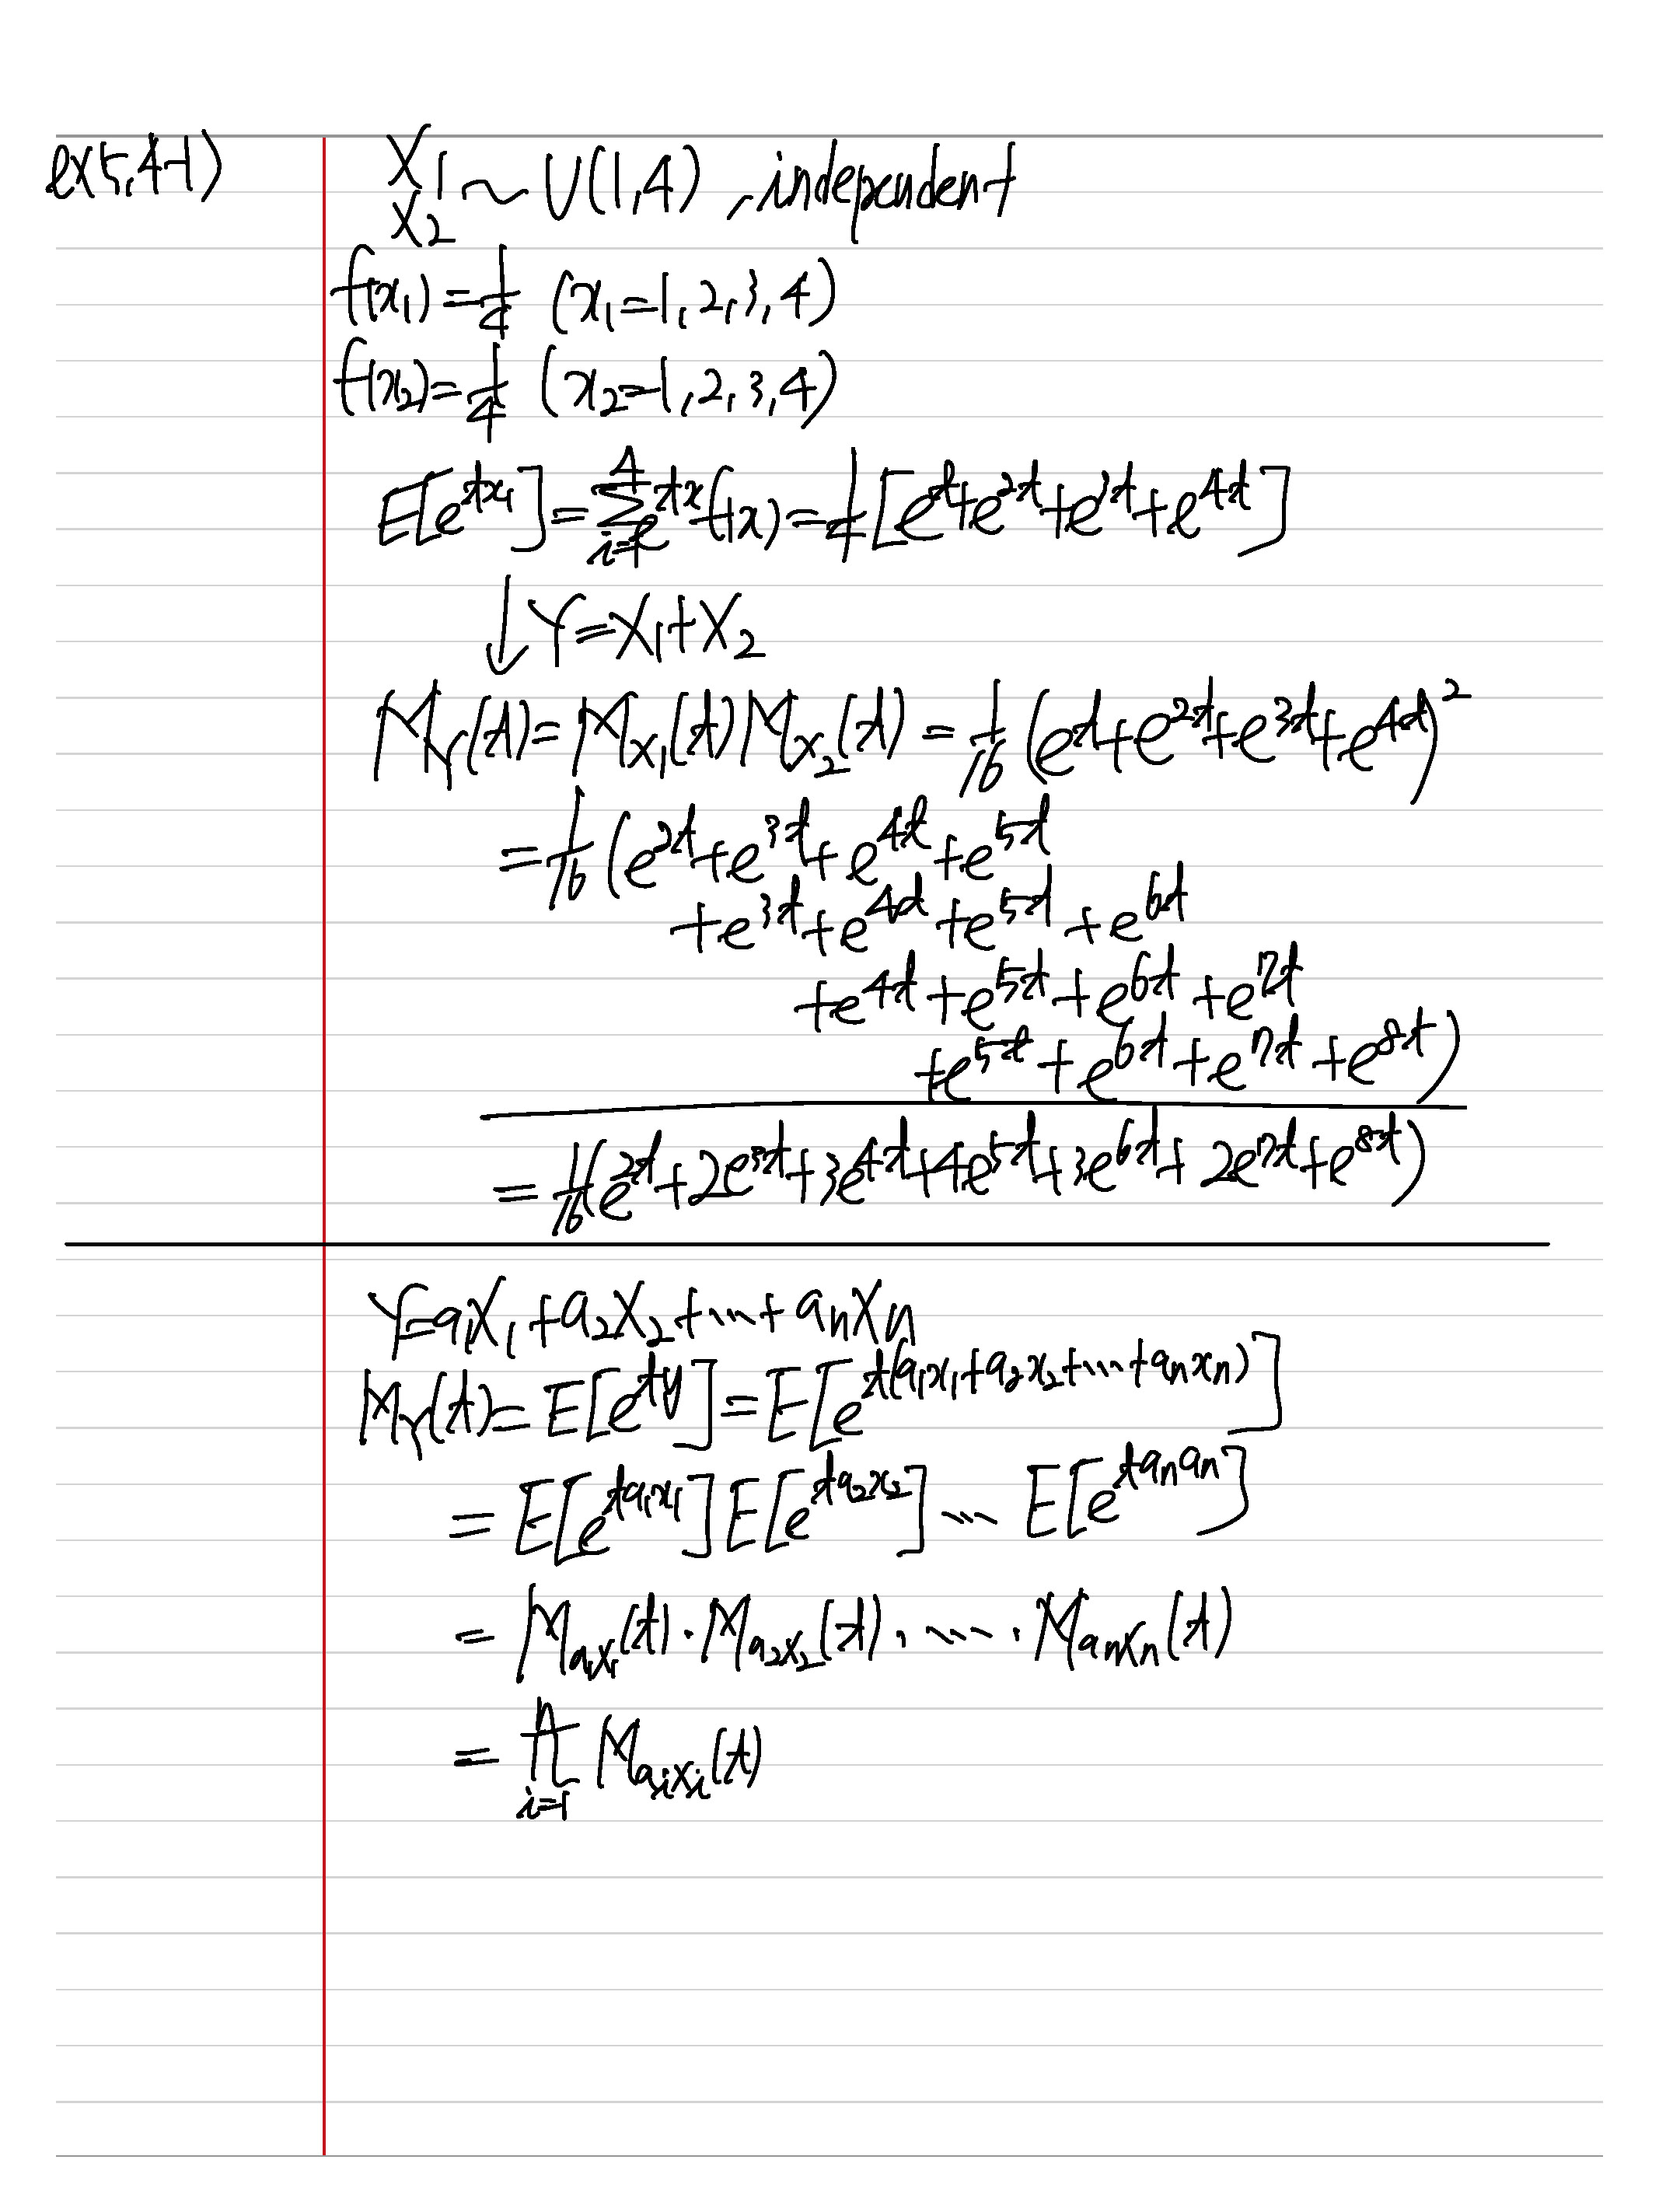 ex5.4-1) X₁ X₂ ~ U(1,4), independent
f(x₁)=1/4 (x₁=1,2,3,4)
f(x₂)=1/4 (x₂=1,2,3,4)
E[e^{tx₁}]=∑_{i=1}^{4} e^{tx}f(x)=1/4[e^{t}+e^{2t}+e^{3t}+e^{4t}]
↓ Y=X₁+X₂
M_Y(t)=M_{X₁}(t)M_{X₂}(t)=1/16(e^{t}+e^{2t}+e^{3t}+e^{4t})²
=1/16(e^{2t}+e^{3t}+e^{4t}+e^{5t}
+e^{3t}+e^{4t}+e^{5t}+e^{6t}
+e^{4t}+e^{5t}+e^{6t}+e^{7t}
+e^{5t}+e^{6t}+e^{7t}+e^{8t})
=1/16(e^{2t}+2e^{3t}+3e^{4t}+4e^{5t}+3e^{6t}+2e^{7t}+e^{8t})
Y=a₁X₁+a₂X₂+…+aₙXₙ
M_Y(t)=E[e^{ty}]=E[e^{t(a₁x₁+a₂x₂+…+aₙxₙ)}]
=E[e^{ta₁x₁}]E[e^{ta₂x₂}]…E[e^{taₙaₙ}]
=M_{a₁X₁}(t)·M_{a₂X₂}(t)·…·M_{aₙXₙ}(t)
=∏_{i=1}^{n} M_{aᵢXᵢ}(t)